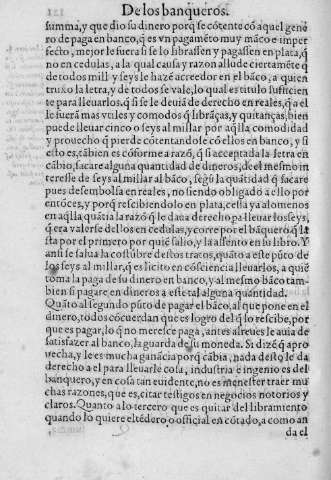 De los banqueros.
summa, y que dio su dinero porq̃ se cõtente cõ aquel gene
ro de paga en banco, q̃ es vn pagamẽto muy mãco e imper
fecto, mejor le fuera si se lo librassen y pagassen en plata, q̃
no en cedulas, a la qual causa y razon allude ciertamẽte q̃
de todos mill y seys le hazẽ acreedor en el bãco, a quien
truxo la letra, y de todos se vale, lo qual es titulo sufficien
te para lleuarlos. q̃ si se le deuiã de derecho en reales, q̃ a el
le fuerã mas vtiles y comodos q̃ librãças, y quitanças, bien
puede lleuar cinco o seys al millar por aq̃lla comodidad
y prouecho q̃ pierde cõtentandose cõ ellos en banco, y si
esto es, tãbien es cõforme a razõ, q̃ si acceptada la letra en
cãbio, sacare alguna quantidad de dineros, dexe el mesmo in
teresse de seys al millar al bãco, segũ la quãtidad q̃ sacare
pues desembolsa en reales, no siendo obligado a ello por
entõces, y porq̃ rescibiendolo en plata, cessa ya alomenos
en aq̃lla quãtia la razõ q̃ le daua derecho pa lleuar los seys,
q̃ era valerse dellos en cedulas, y corre por el bãquero q̃ la
sta por el primero por quiẽ salio, y la assento en su libro. Y
ansi se salua la costũbre destos tratos, quãto a este pũto de
los seys al millar, q̃ es licito en cõsciencia lleuarlos, a quiẽ
toma la paga de su dinero en banco, y al mesmo bãco tam-
bien si pagare en dineros a este tal alguna quantidad.
Quãto al segundo pũto de pagar el bãco, al que pone en el
dinero, todos cõcuerdan que es logro del q̃ lo rescibe, por
que es pagar, lo q̃ no meresce paga, antes al reues le auia de
satisfazer al banco, la guarda de su moneda. Si dizẽ q̃ apro
uecha, y le es mucha ganãcia porq̃ cãbia, nada desto le da
derecho a el para lleuarle cosa, industria e ingenio es del
banquero, y en cosa tan euidente, no es menester traer mu
chas razones, que es, citar testigos en negocios notorios y
claros. Quanto a lo tercero que es quitar del libramiento
quando lo quiere el tẽdero o official en cõtado, a como an
da el